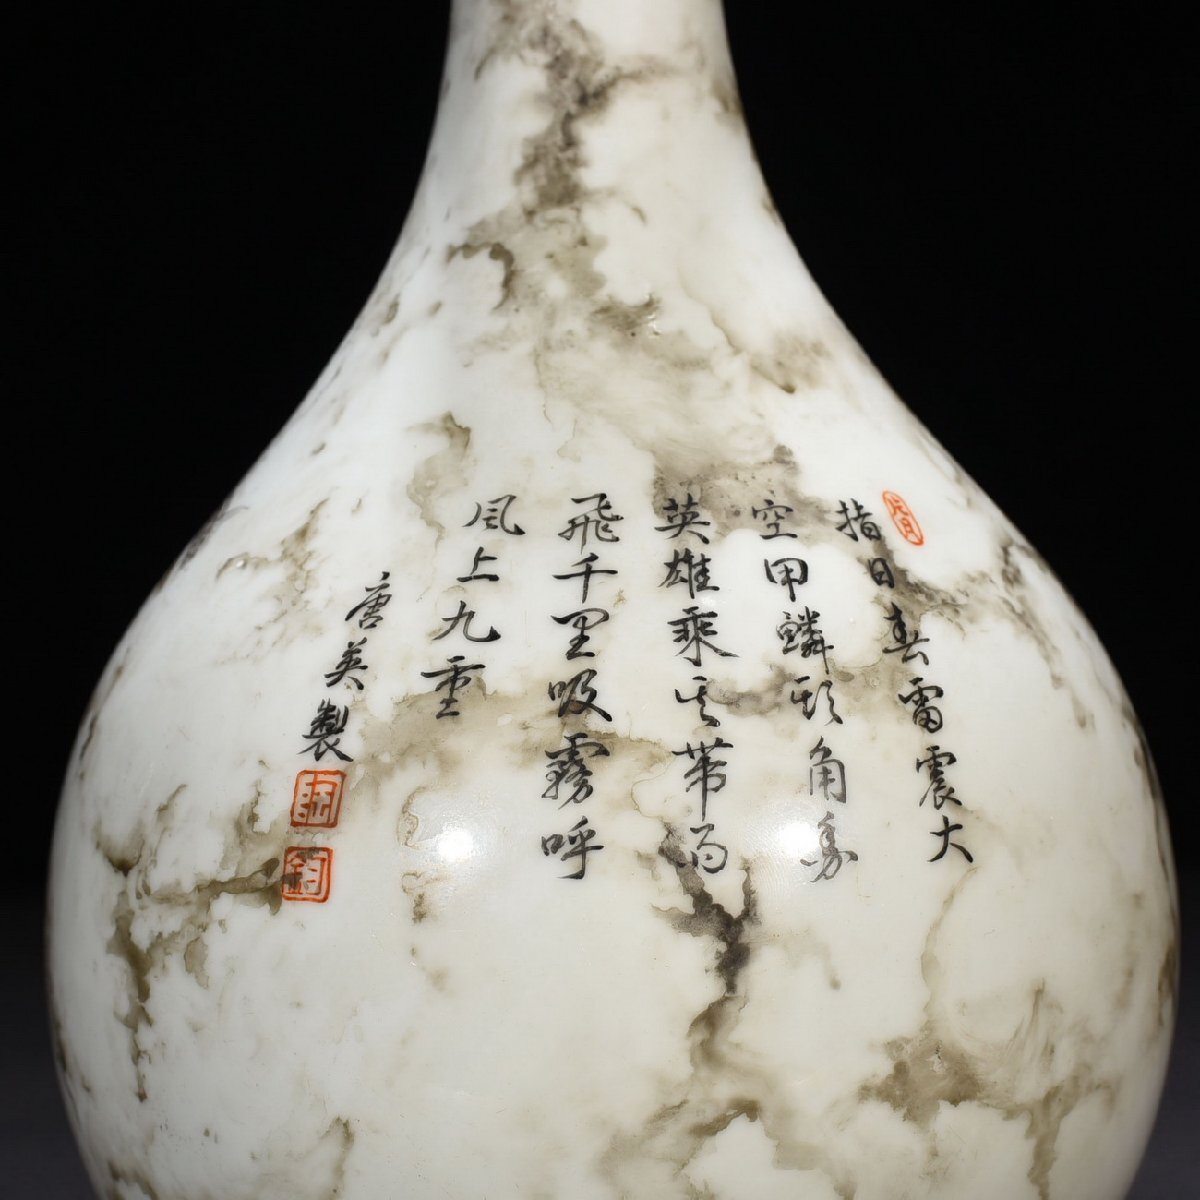 指日春雷震大
空甲鳞頭角勇
英雄乘雲帶雨
飛千里吸霧呼
風上九重
唐英製